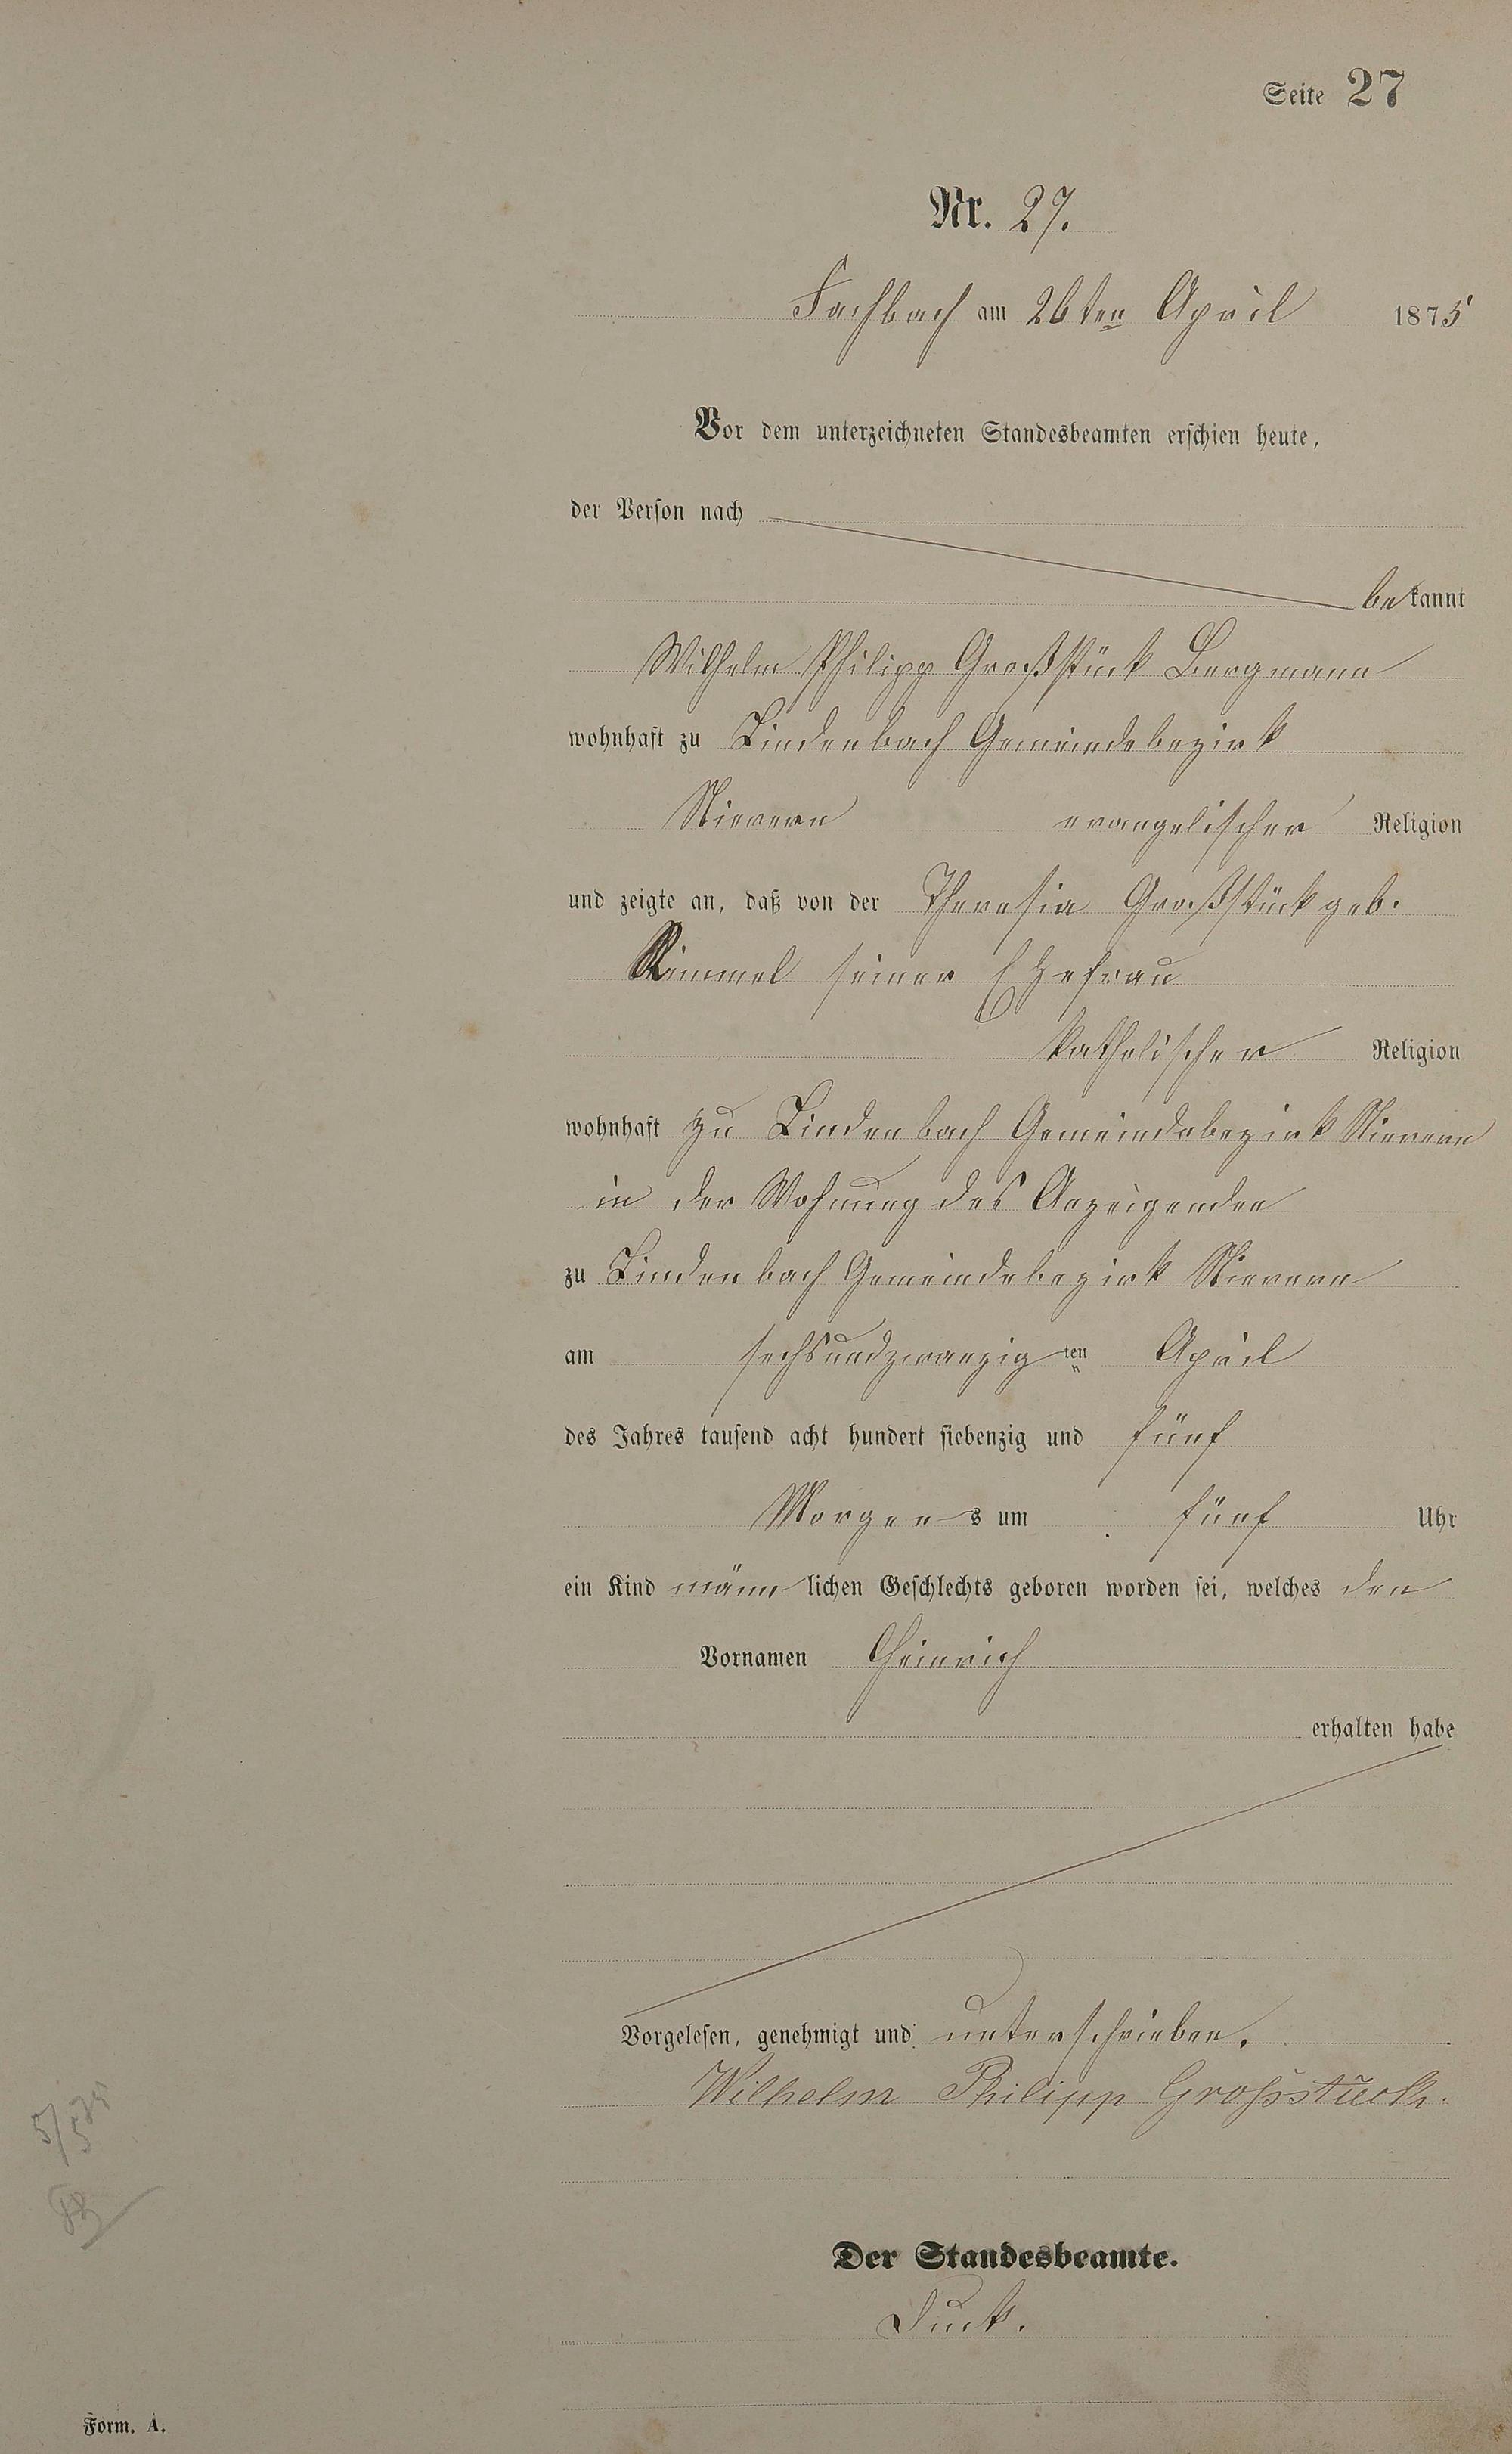 Seite 27
Nr. 27.
Fachbach am 26ten April 1875
Vor dem unterzeichneten Standesbeamten erschien heute,
der Person nach
bekannt
Wilhelm Philipp Großstück Bergmann
wohnhaft zu Lindenbach Gemeindebezirk
Nievern evangelischer Religion
und zeigte an, daß von der Theresia Großstück geb.
Kimmel seiner Ehefrau
katholischer Religion
wohnhaft zu Lindenbach Gemeindebezirk Nievern
in der Wohnung des Anzeigenden
zu Lindenbach Gemeindebezirk Nievern
am sechsundzwanzigten April
des Jahres tausend acht hundert siebenzig und fünf
Morgens um fünf Uhr
ein Kind männlichen Geschlechts geboren worden sei, welches den
Vornamen Heinrich
erhalten habe
Vorgelesen, genehmigt und unterschrieben.
Wilhelm Philipp Großstück.
Der Standesbeamte.
Form. A.